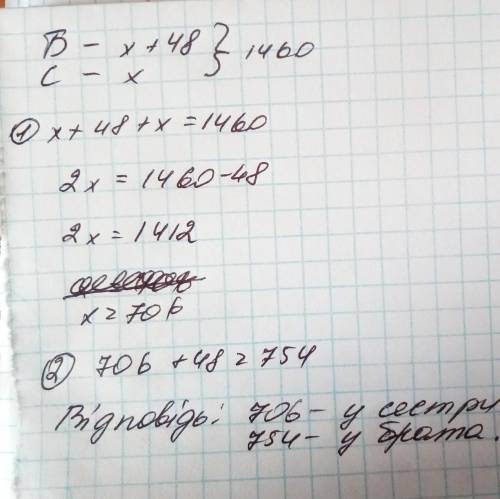 Б - x + 48 } 1460
С - x
① x + 48 + x = 1460
2x = 1460 - 48
2x = 1412
x = 706
② 706 + 48 = 754
Відповідь: 706 - у сестри
754 - у брата.